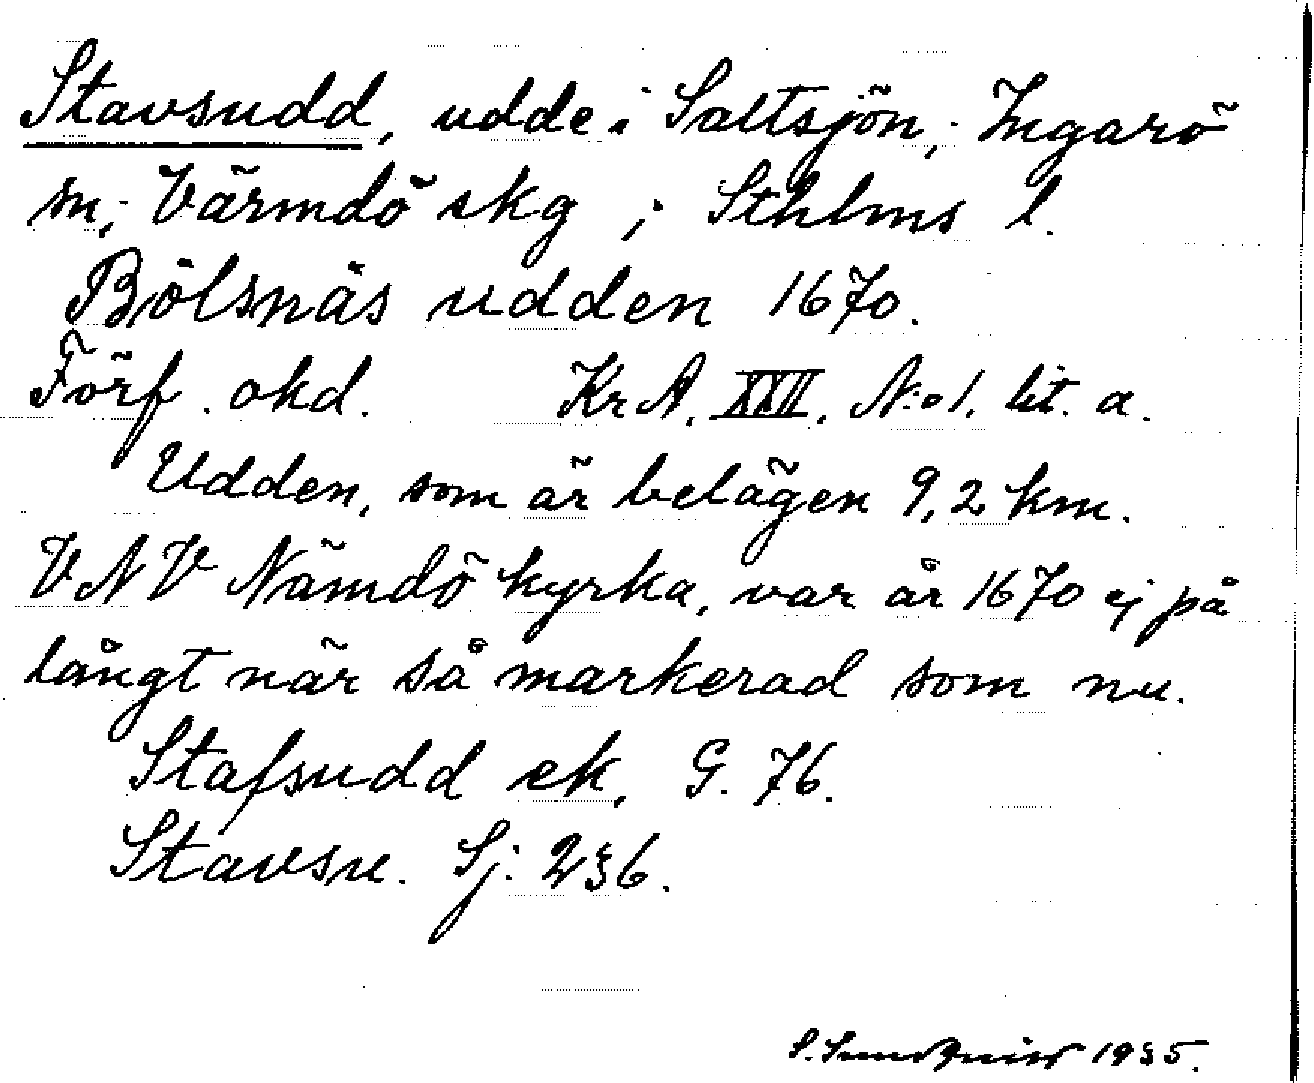 Stavsudd, udde i Saltsjön; Ingarö
sn; Värmdö skg; Sthlms l.
Bölsnäs udden 1670.
Förf. okd. Kr A. XXII. N:o 1. lit. a.
Udden, som är belägen 9,2 km.
VNV Nämdö kyrka, var år 1670 ej på
långt när så markerad som nu.
Stafsudd ek. G. 76.
Stavsu. Sj: 236.
S. Sundqvist 1935.